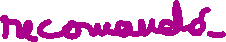 recomandó_